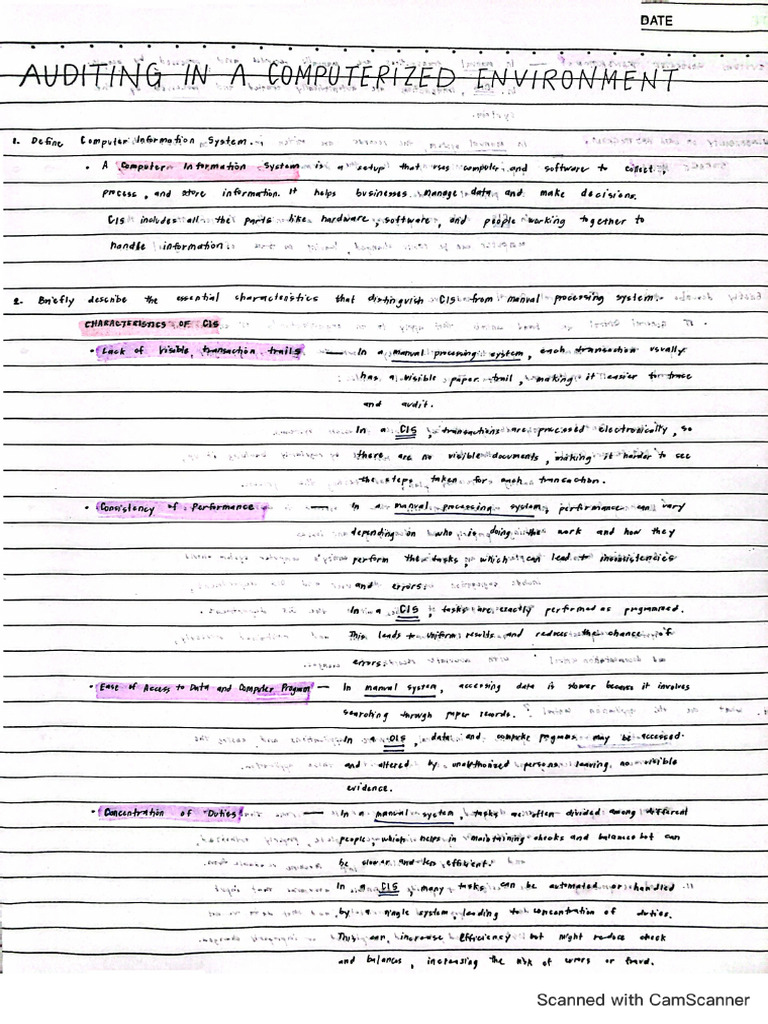 DATE
AUDITING IN A COMPUTERIZED ENVIRONMENT
1. Define Computer Information System.
• A Computer Information System is a setup that uses computer and software to collect,
process, and store information. It helps businesses manage data and make decisions.
CIS includes all the parts like hardware, software, and people working together to
handle information.
2. Briefly describe the essential characteristics that distinguish CIS from manual processing system.
CHARACTERISTICS OF CIS
• Lack of Visible transaction trails — In a manual processing system, each transaction usually
has a visible paper trail, making it easier to trace
and audit.
In a CIS, transactions are processed electronically, so
there are no visible documents, making it harder to see
the steps taken for each transaction.
• Consistency of Performance — In a manual processing system, performance can vary
depending on who is doing the work and how they
perform the tasks, which can lead to inconsistencies
and errors.
In a CIS, tasks are exactly performed as programmed.
This leads to uniform results and reduces the chance of
errors.
• Ease of Access to Data and Computer Program — In manual system, accessing data is slower because it involves
searching through paper records.
In a CIS, data and computer programs may be accessed
and altered by unauthorized persons leaving no visible
evidence.
• Concentration of Duties — In a manual system, tasks are often divided among different
people, which helps in maintaining checks and balances but can
be slower and less efficient.
In a CIS, many tasks can be automated or handled
by a single system, leading to concentration of duties.
This can increase efficiency but might reduce check
and balances, increasing the risk of errors or fraud.
Scanned with CamScanner